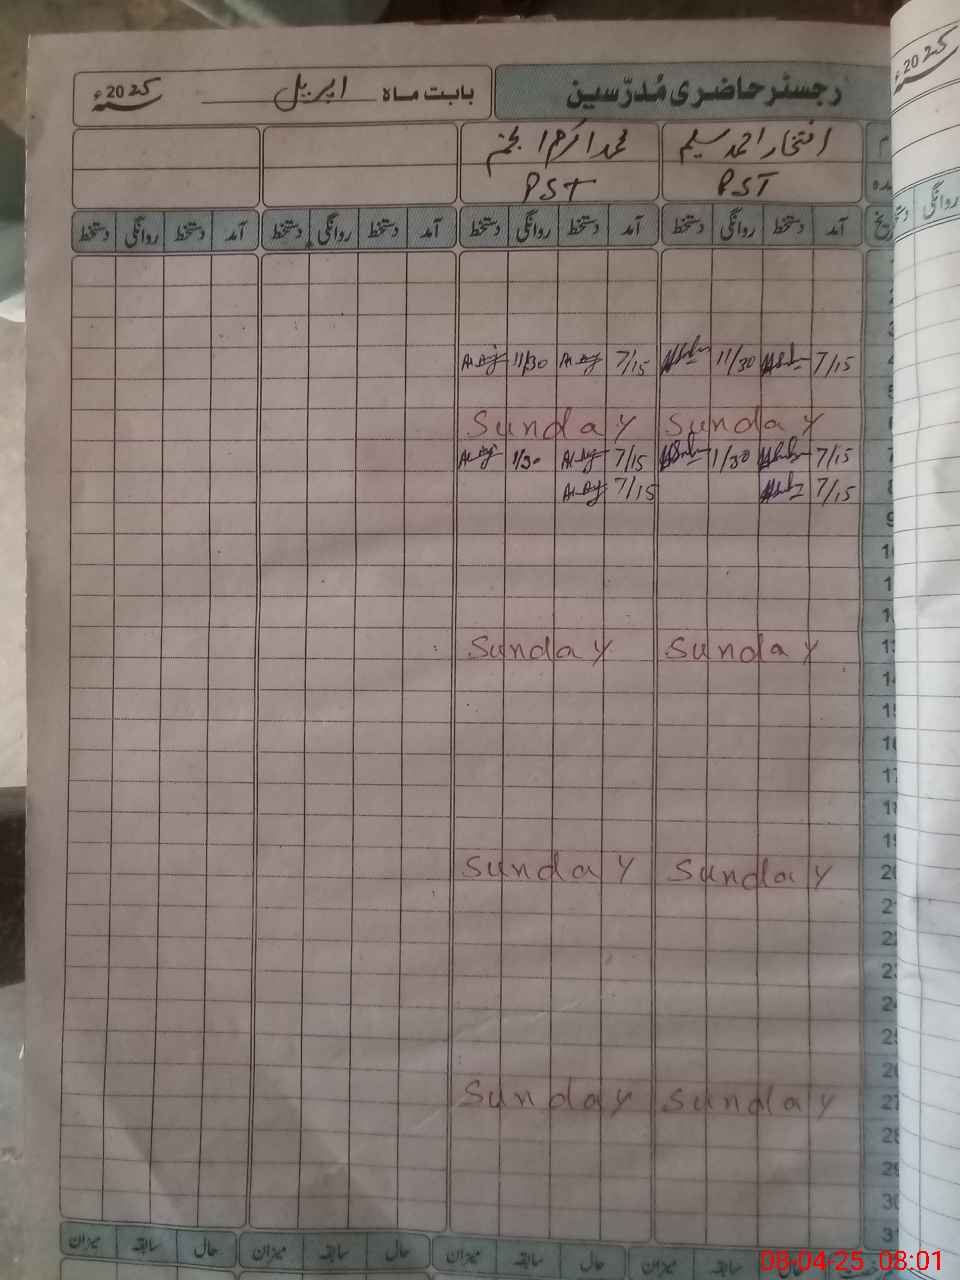 رجسٹر حاضری مُدرّسین بابت ماہ اپریل 2025ء
افتخار احمد سلیم محمد اکرم انجم
PST PST
آمد دستخط روانگی دستخط آمد دستخط روانگی دستخط آمد دستخط روانگی دستخط آمد دستخط روانگی دستخط
4 7/15 11/30 7/15 11/30
5
6 Sunday Sunday
7 7/15 1/30 7/15 1/30
8 7/15 7/15
9
13 Sunday Sunday
14
15
16
17
18
19
20 Sunday Sunday
21
22
23
24
25
26
27 Sunday Sunday
28
29
30
31
حال سابقہ میزان حال سابقہ میزان حال سابقہ میزان
08-04-25 08:01
2025ء
روانگی